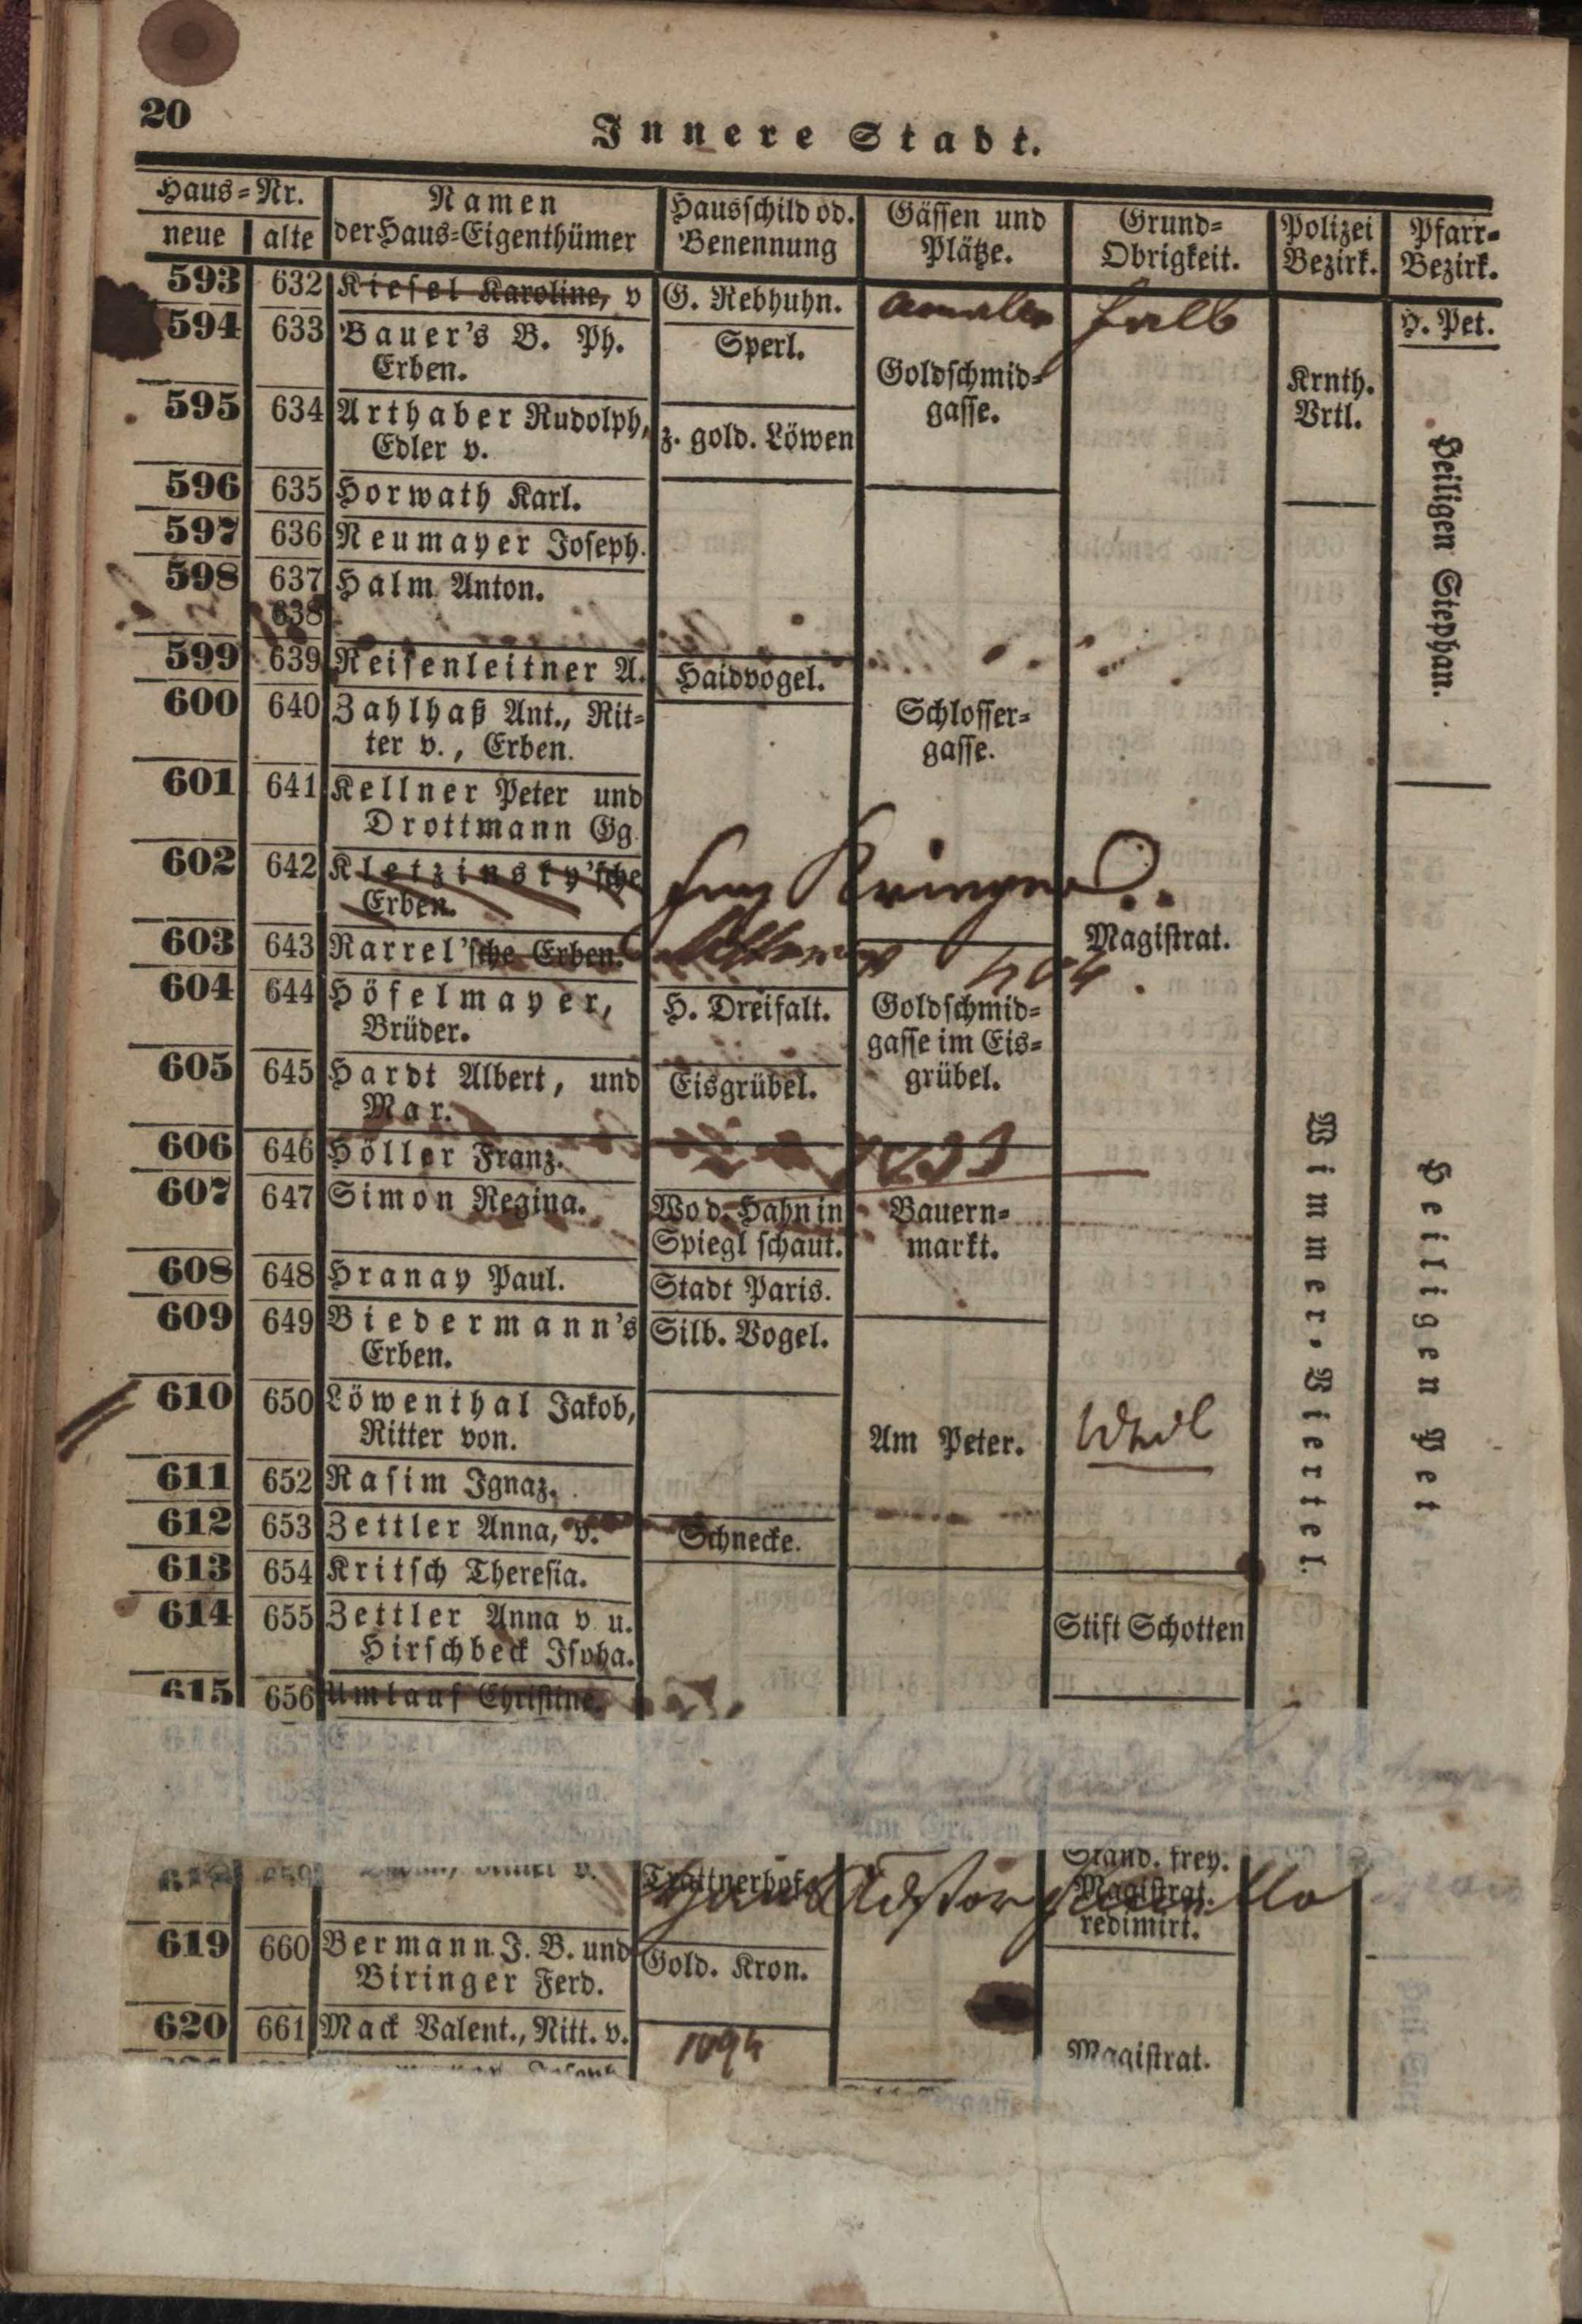 20
Innere Stadt.
Haus-Nr. Namen Hausschild od. Gässen und Grund- Polizei Pfarr-
neue alte der Haus-Eigenthümer Benennung Plätze. Obrigkeit. Bezirk. Bezirk.
593 632 Kiesel Karoline, v G. Rebhuhn. H. Pet.
594 633 Bauer's B. Ph. Sperl.
Erben. Goldschmid- Krnth.
595 634 Arthaber Rudolph, z. gold. Löwen gasse. Vrtl.
Edler v.
Heiligen Stephan.
596 635 Horwath Karl.
597 636 Neumayer Joseph.
598 637 Halm Anton.
638
599 639 Reisenleitner A. Haidvogel.
600 640 Zahlhaß Ant., Rit- Schlosser-
ter v., Erben. gasse.
601 641 Kellner Peter und
Drottmann Gg.
602 642 Kletzinsky'sche
Erben.
603 643 Rarrel'sche Erben. Magistrat.
604 644 Höfelmayer, H. Dreifalt. Goldschmid-
Brüder. gasse im Eis-
605 645 Hardt Albert, und Eisgrübel. grübel.
Mar.
Wimmer-Viertel.
Heiligen Pet
606 646 Höller Franz.
607 647 Simon Regina. Wo d. Hahn in Bauern-
Spiegl schaut. markt.
608 648 Hranay Paul. Stadt Paris.
609 649 Biedermann's Silb. Vogel.
Erben.
610 650 Löwenthal Jakob,
Ritter von. Am Peter.
611 652 Rasim Ignaz.
612 653 Zettler Anna, v. Schnecke.
613 654 Kritsch Theresia.
614 655 Zettler Anna v. u. Stift Schotten
Hirschbeck Jspha.
615 656 Umlauf Christine.
Am Graben.
Trattnerhof Stand. frey.
Magistrat.
redimirt.
619 660 Bermann J. B. und Gold. Kron.
Biringer Ferd.
620 661 Mack Valent., Ritt. v. 1094 Magistrat.